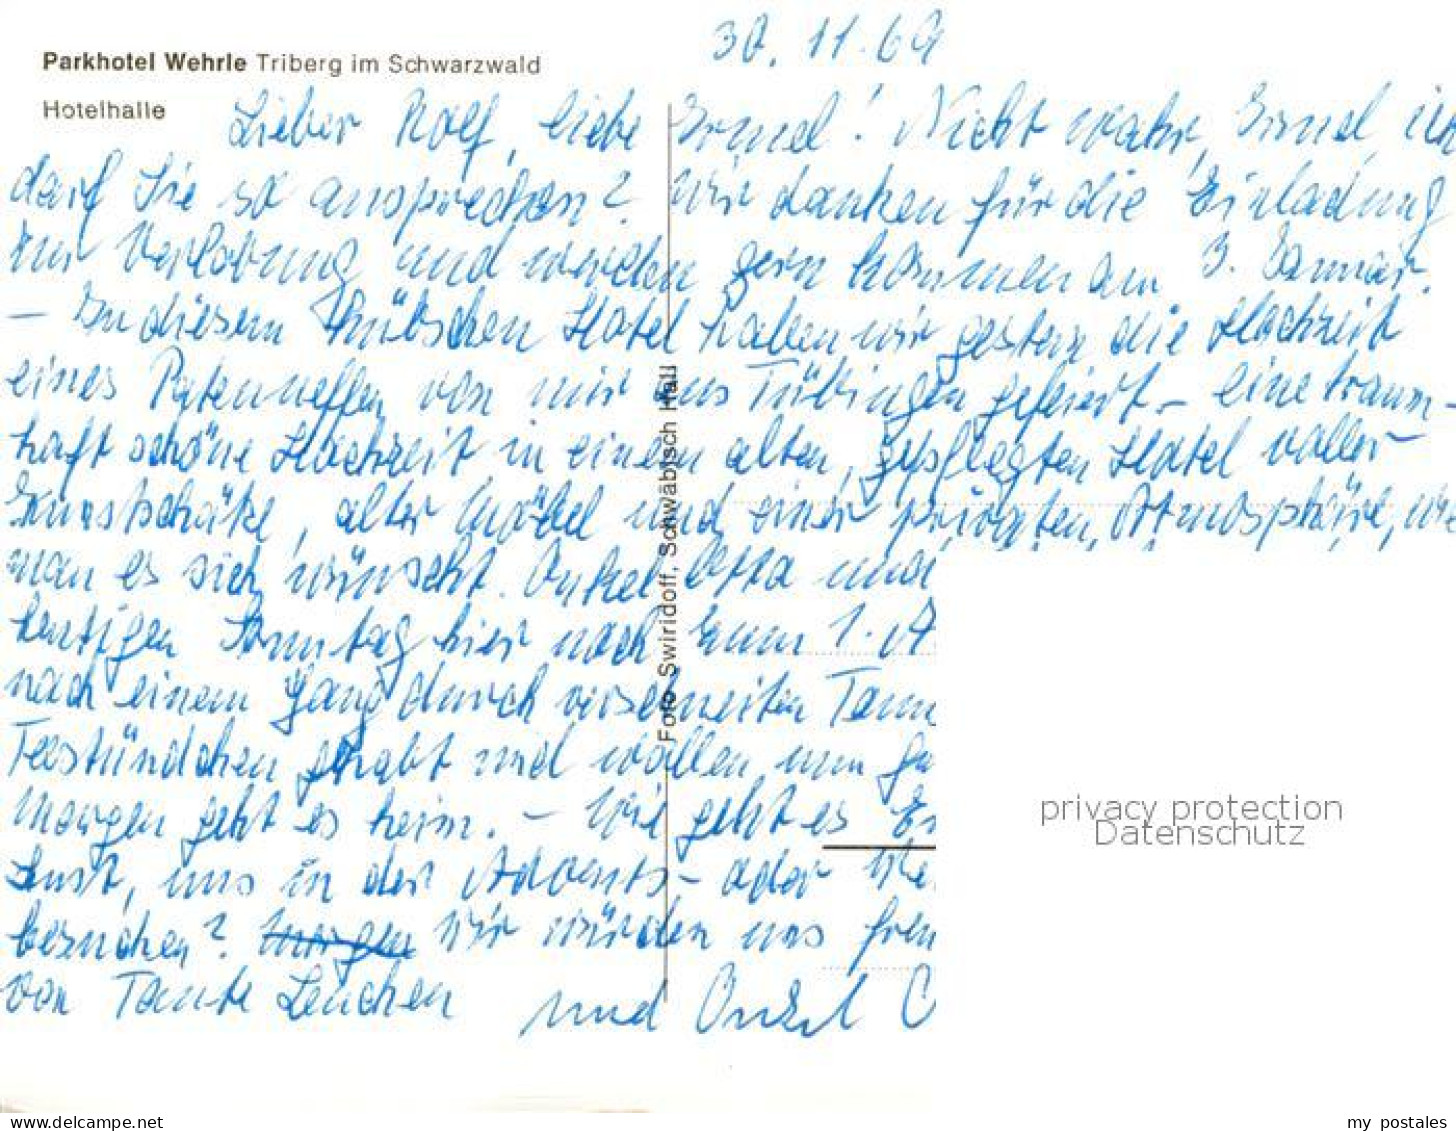 30.11.69
Parkhotel Wehrle Triberg im Schwarzwald
Hotelhalle
Lieber Rolf, liebe Ermel! Nicht wahr, Ermel, ich
darf Sie so ansprechen? Wir danken für die Einladung
zur Verlobung und werden gern kommen am 3. Januar.
– In diesem hübschen Hotel haben wir gestern die Hochzeit
eines Patenneffen von mir aus Tübingen gefeiert – eine traum-
haft schöne Hochzeit in einem alten, gepflegten Hotel voller
Kunstschätze, alter Möbel und einer privaten Atmosphäre, wie
man es sich wünscht. Onkel Otto und
heutigen Sonntag hier noch zum 1. A
nach einem Gang durch verschneiten Tann
Teestündchen gehabt und wollen nun ge
Morgen geht es heim. – Wie geht es E
Lust, uns in der Advents- oder We
besuchen? Morgen Wir würden uns freu
von Tante Lenchen und Onkel O
Foto Swiridoff, Schwäbisch Hall
privacy protection
Datenschutz
www.delcampe.net
my_postales